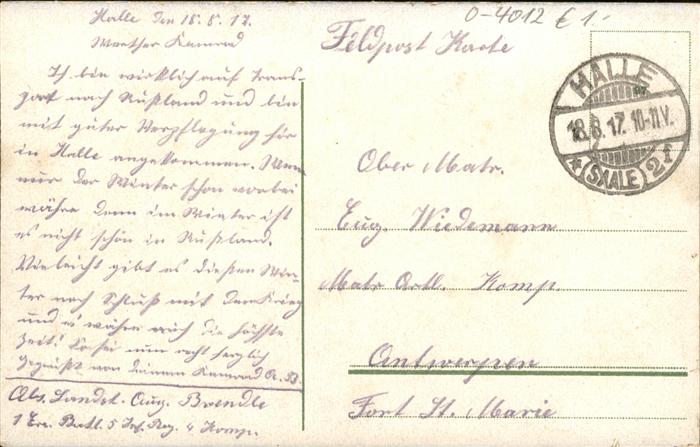 Halle den 18.8.17.
Werther Kamrad
Ich bin wirklich auf Trans-
port nach Rußland und bin
mit guter Verpflegung hir
in Halle angekommen. Wen
nur der Winter schon vorbei
währe denn im Winter ist
es nicht schön in Rußland.
Vieleicht gibt es diesen Win-
ter noch Schluß mit dem Krieg
und es währe auch die höchste
Zeit! Sei nun recht herzlich
Gegrüßt von deinem Kamrad A. B.
Abs. Landst. Aug. Brendle
1 Ers. Batl. 5 Inf. Reg. 4 Komp.
0-4012 € 1.-
Feldpost Karte
HALLE
18.8.17. 10-11V.
* (SAALE) 2 f
Ober Matr.
Eug. Wiedemann
Matr Artl. Komp.
Antwerpen
Fort St. Marie